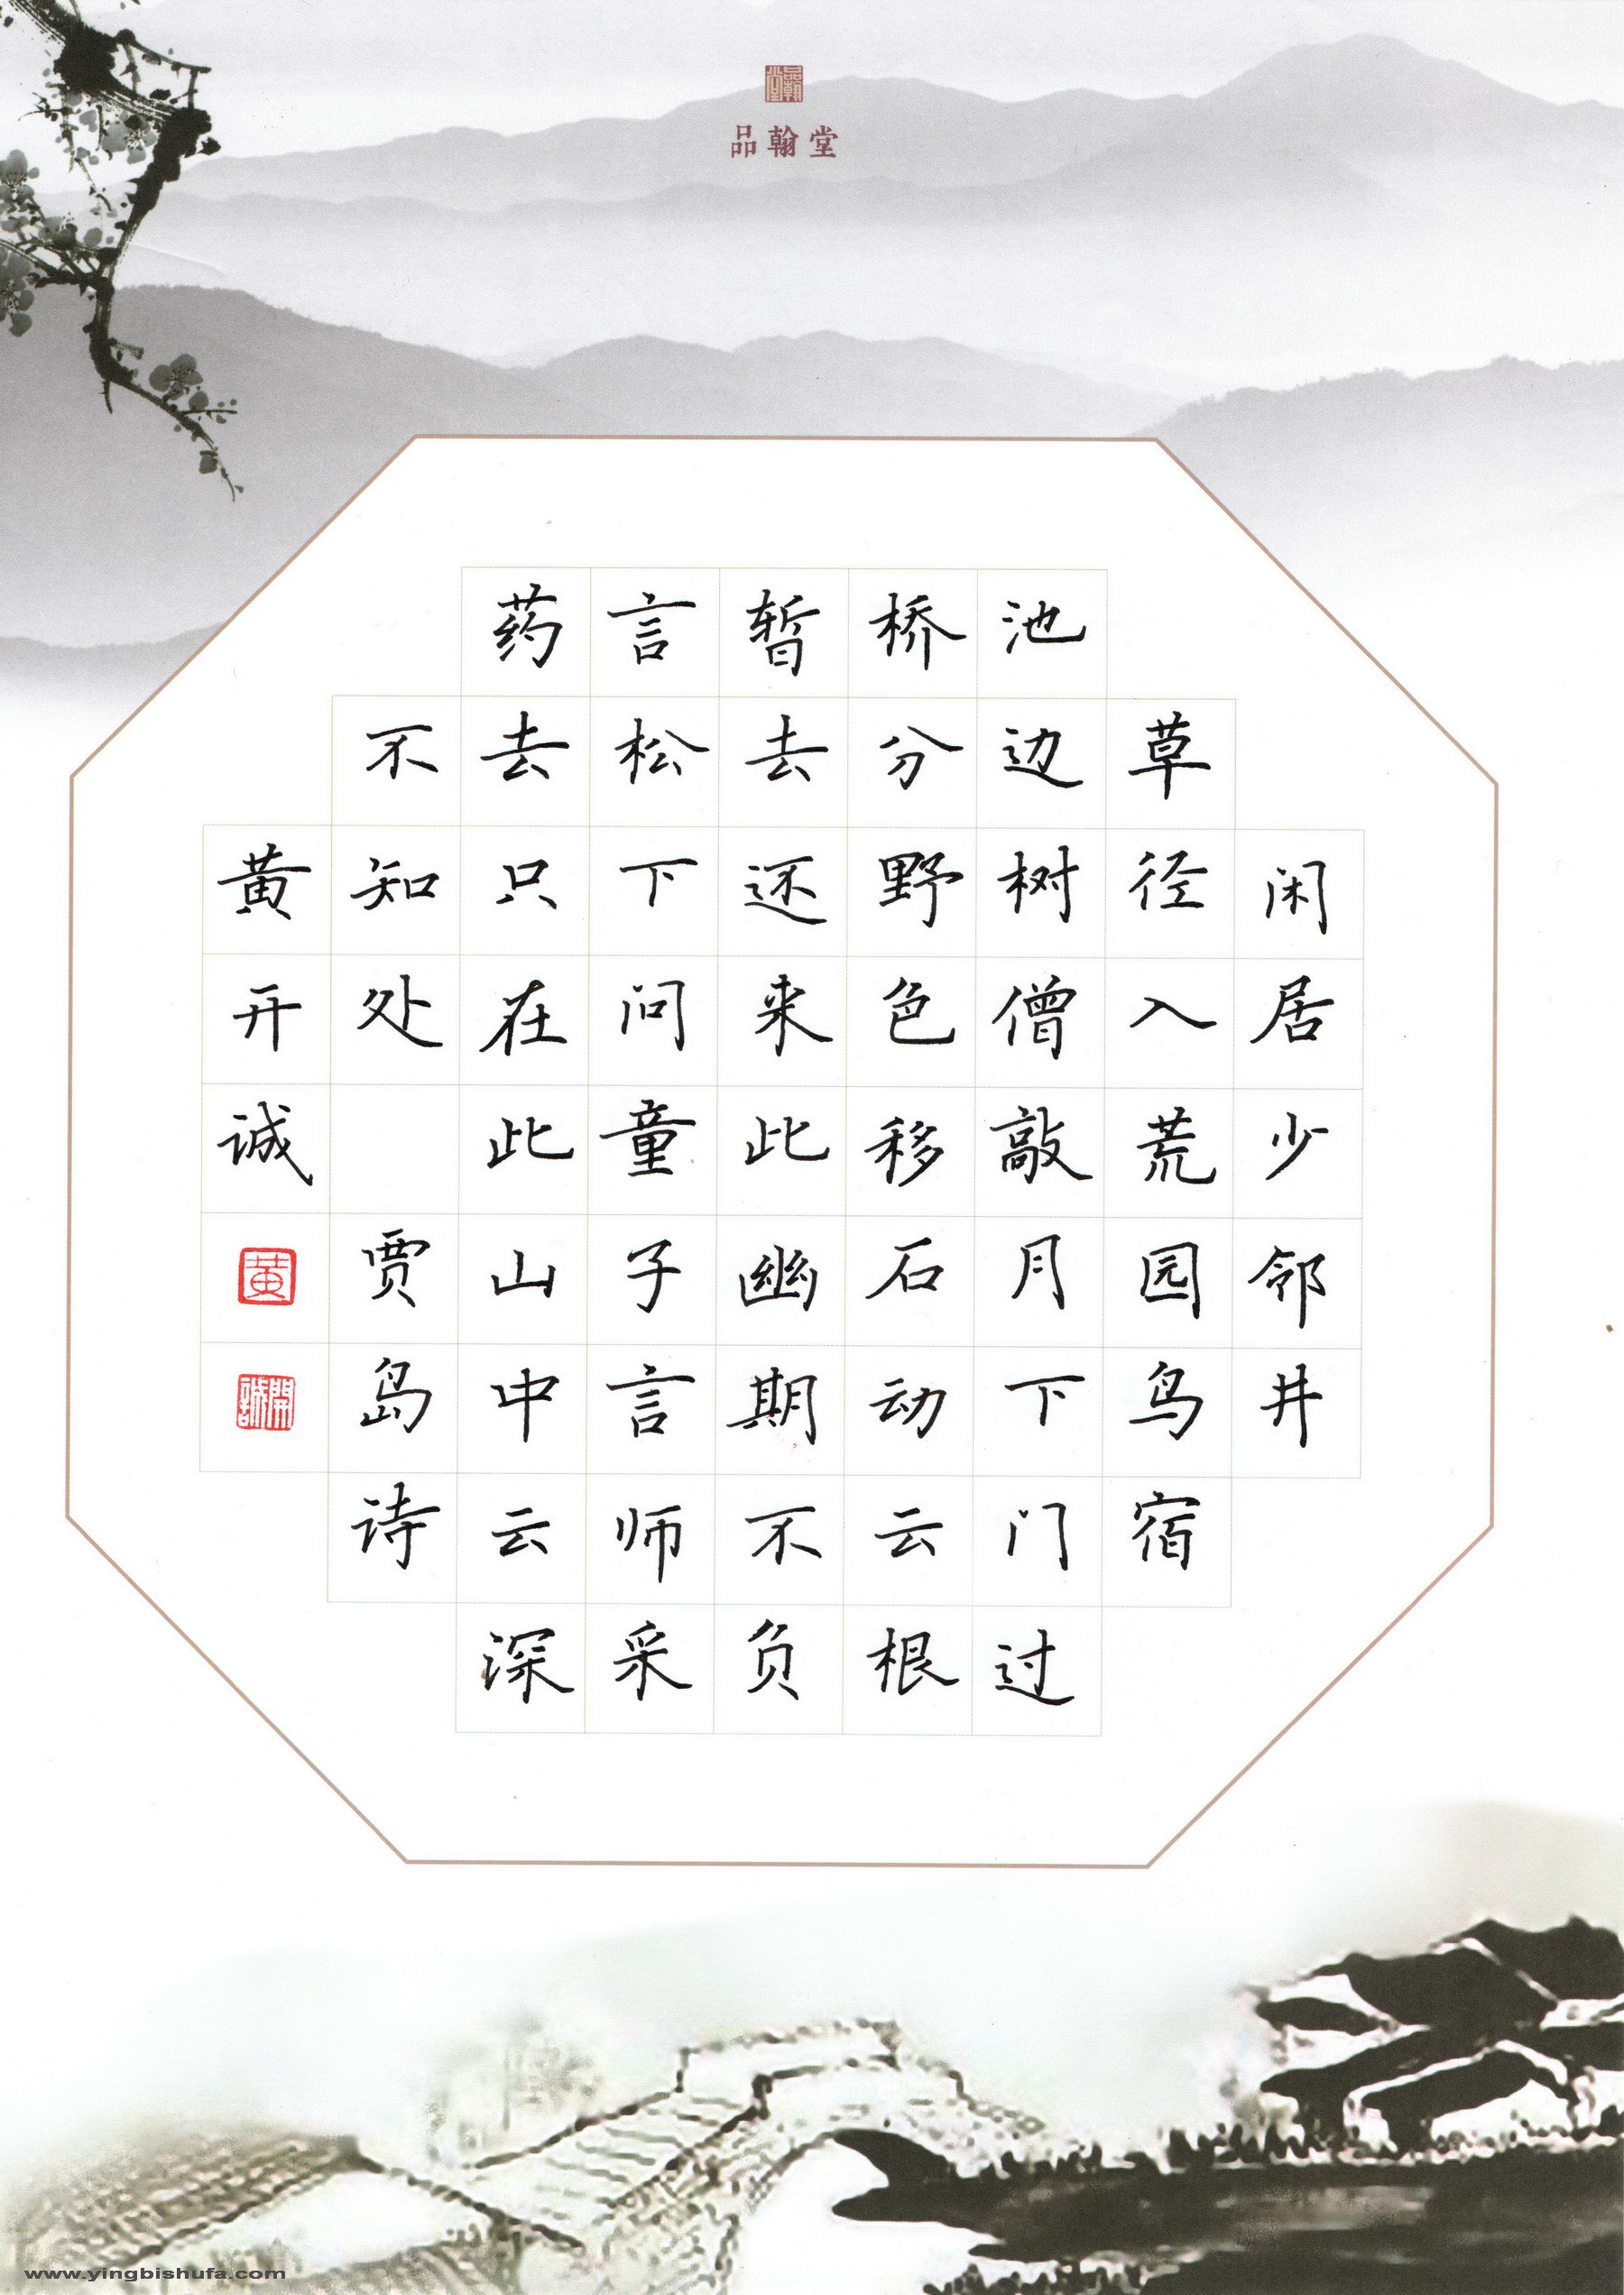 品翰堂
品翰堂
闲居少邻井
草径入荒园鸟宿
池边树僧敲月下门过
桥分野色移石动云根
暂去还来此幽期不负
言松下问童子言师采
药去只在此山中云深
不知处 贾岛诗
黄开诚
黄
開誠
www.yingbishufa.com